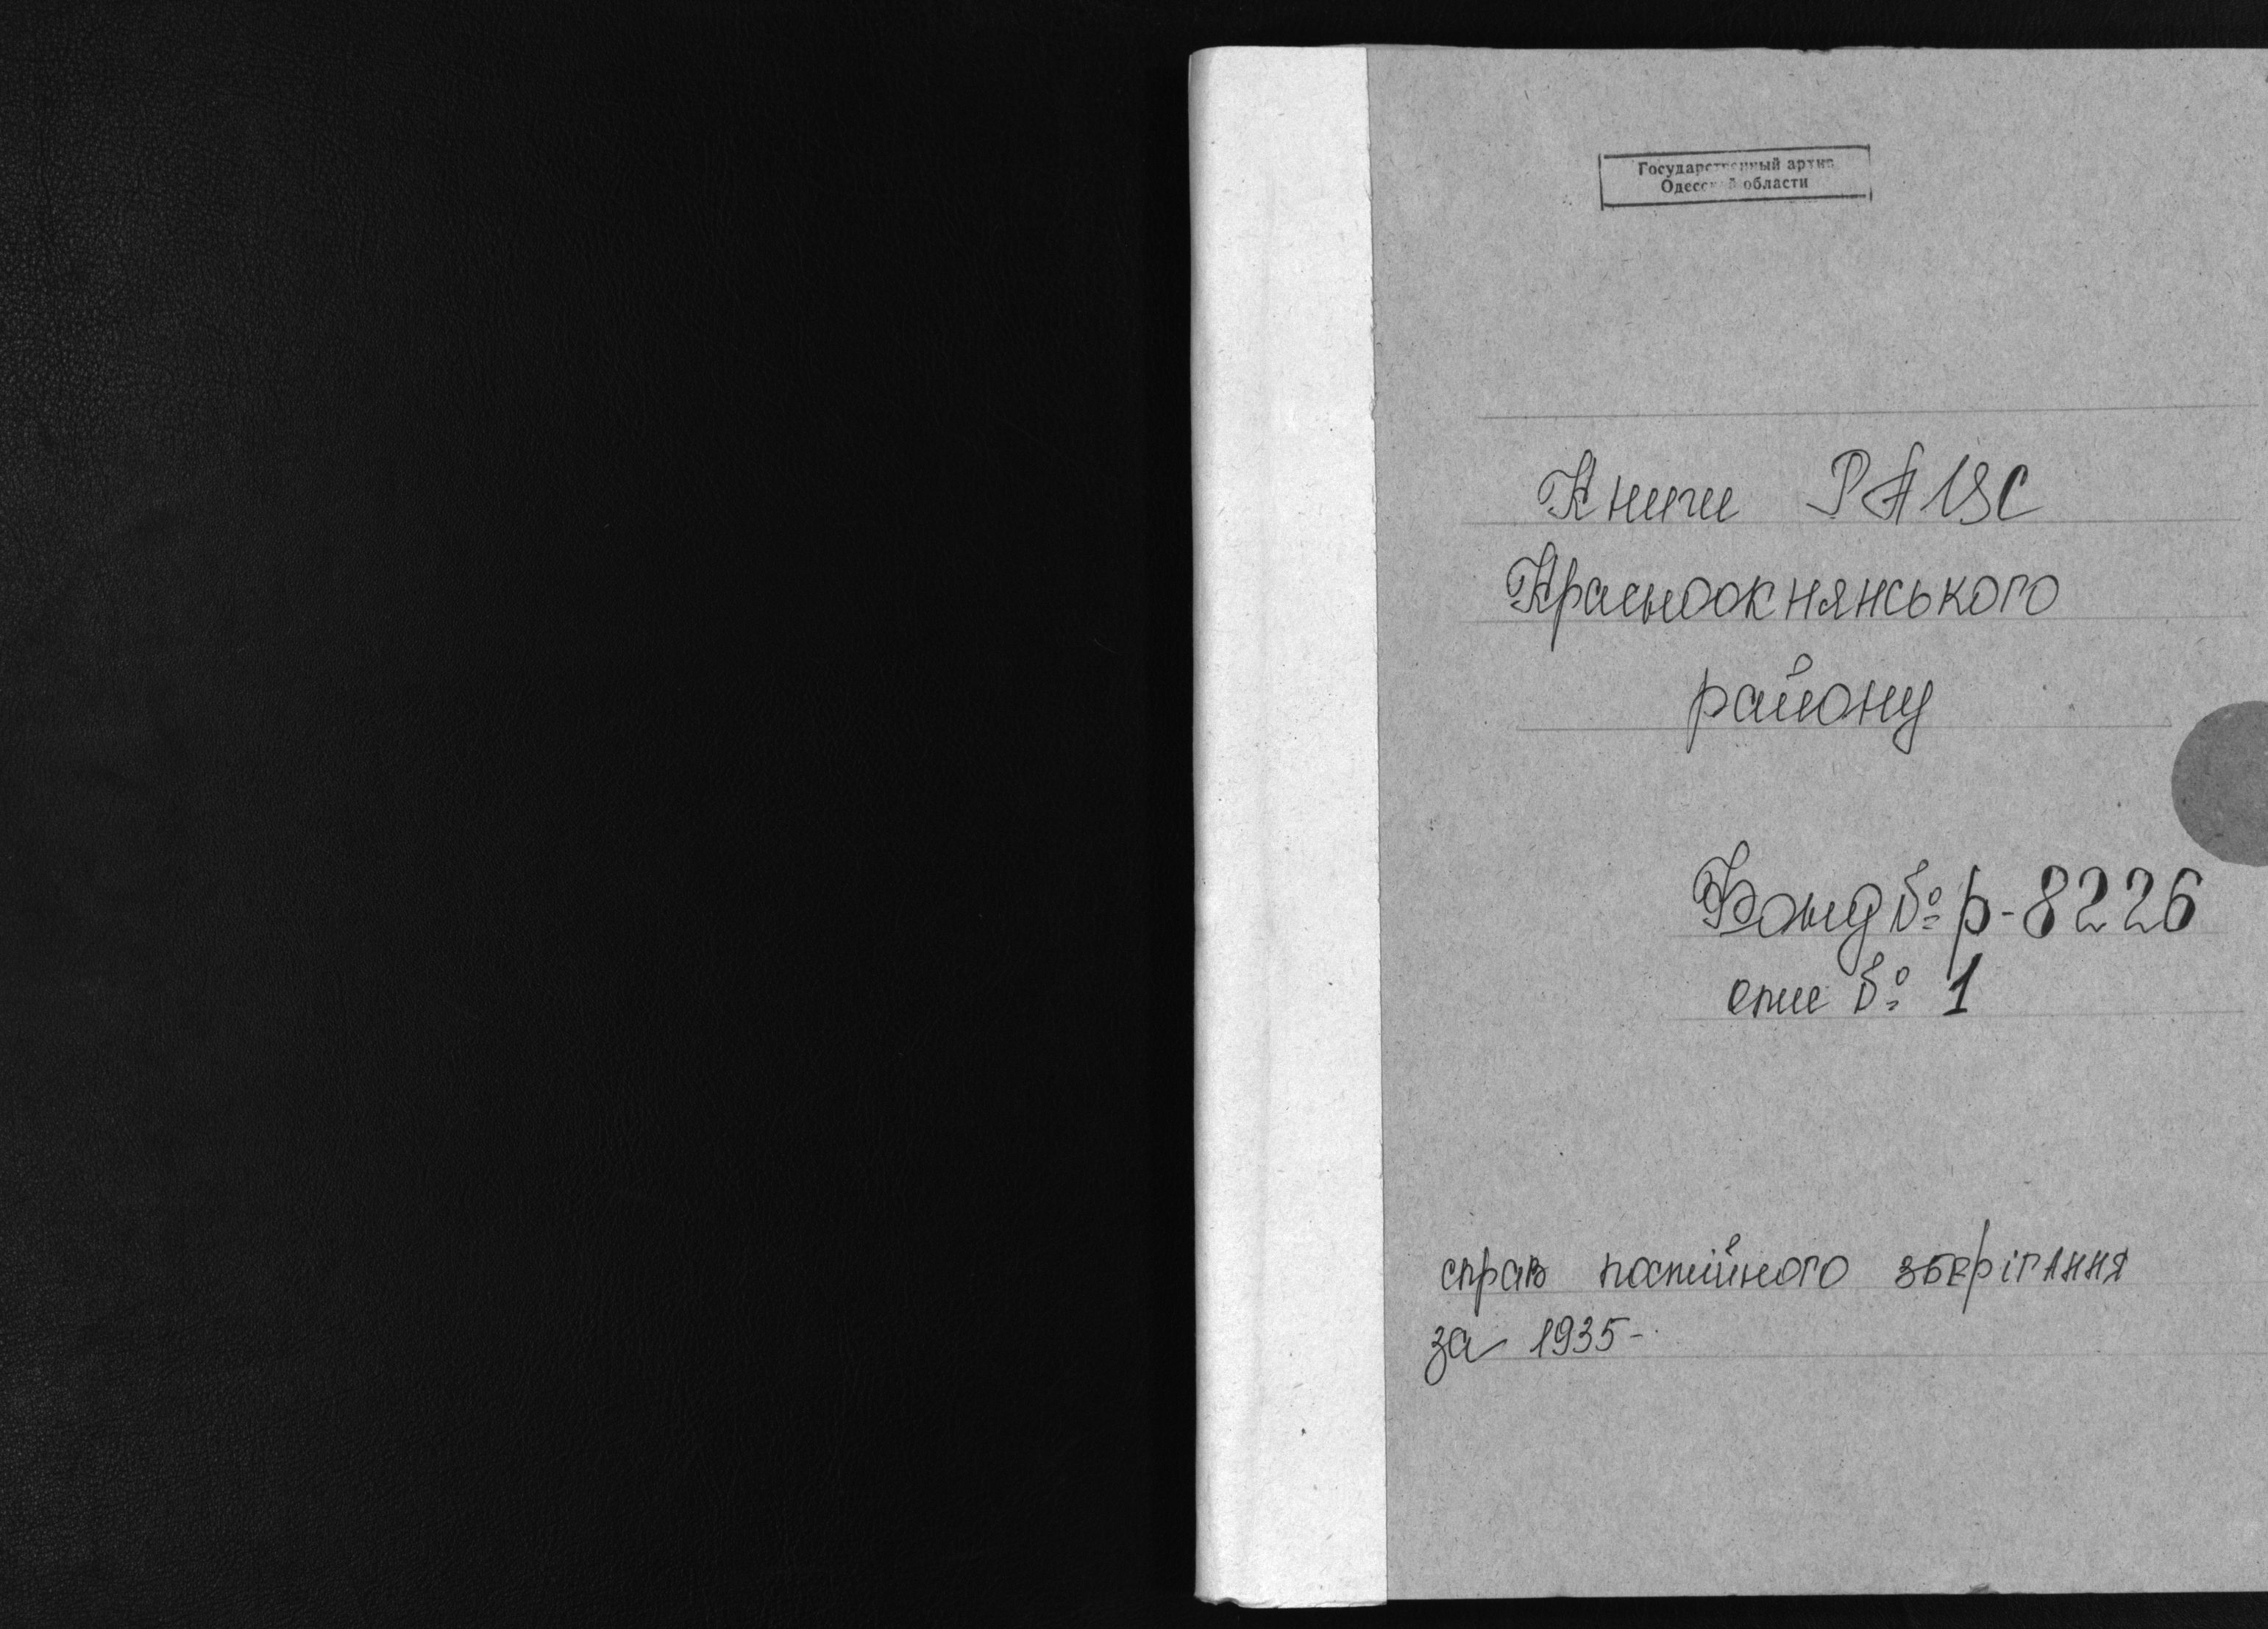 Государственный архив
Одесской области
Книги РАГС
Красноокнянського
району
Фонд № р-8226
опис № 1
справ постійного зберігання
за 1935-